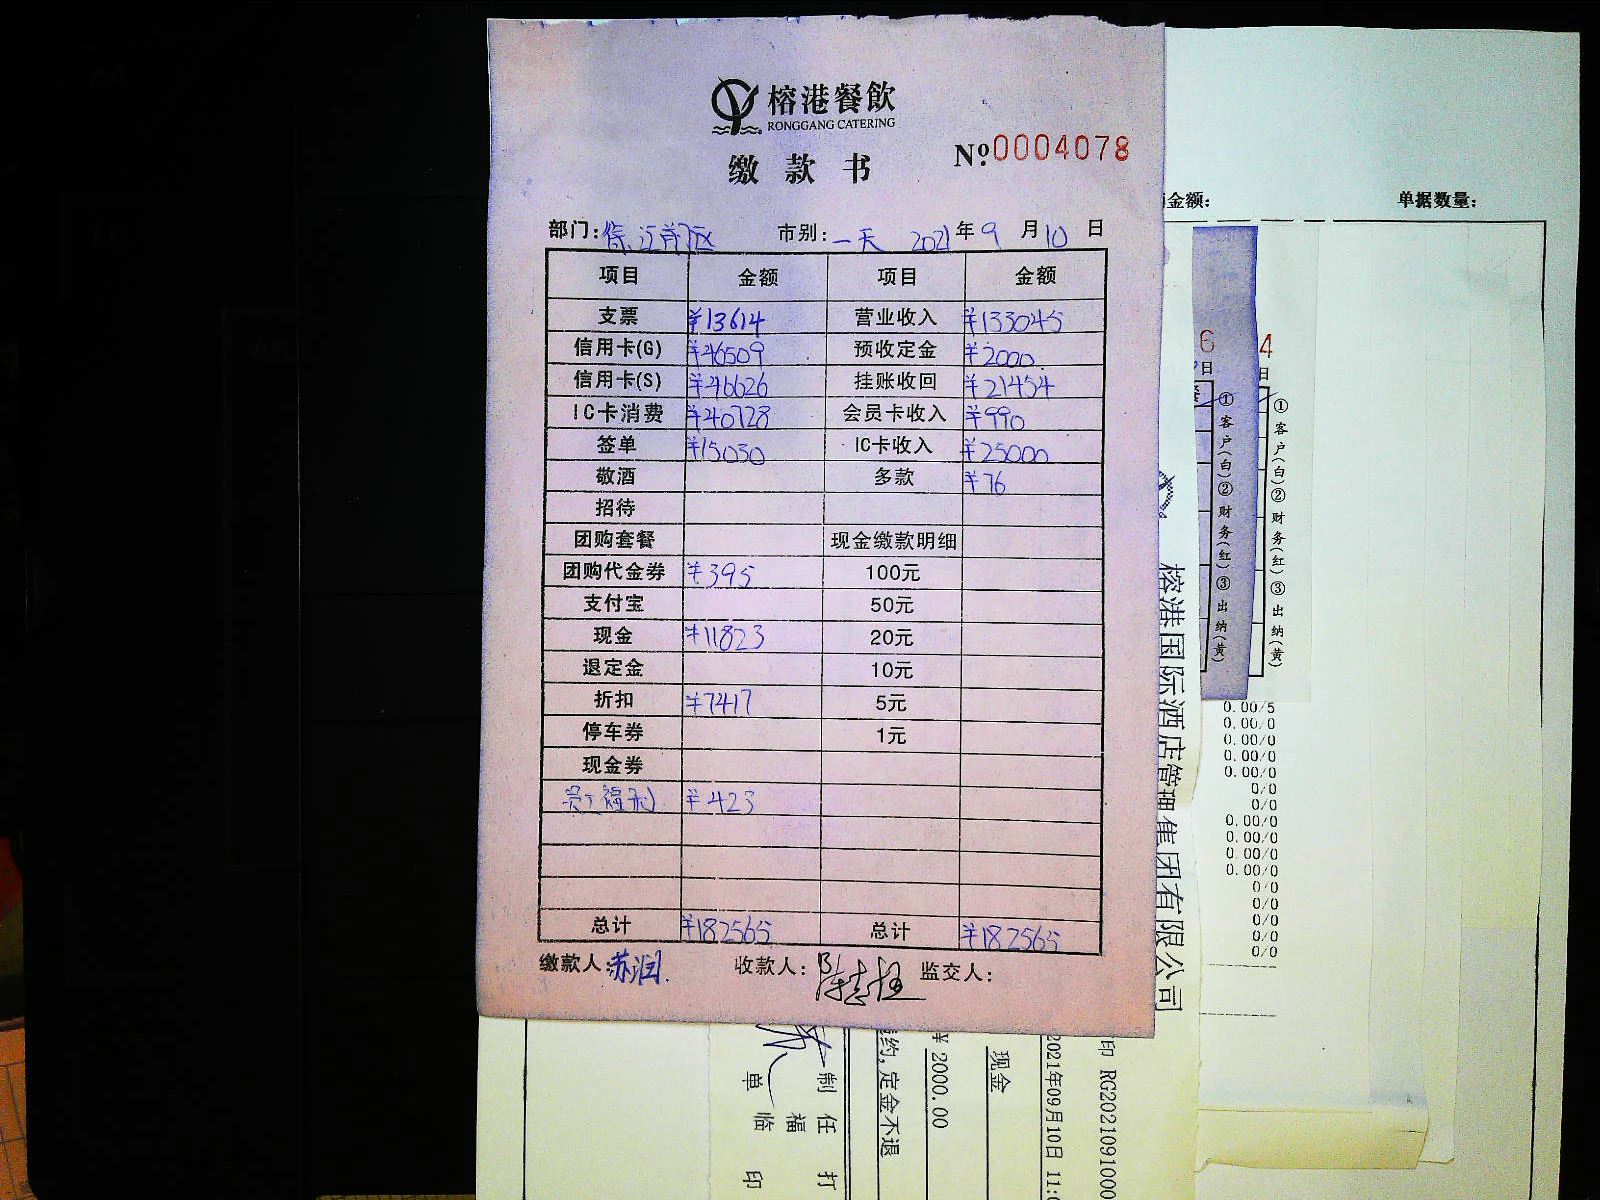 榕港餐飲
RONGGANG CATERING
缴款书
Nº 0004078
部门: 市别: 一天 2021年9月10日
项目 金额 项目 金额
支票 ¥13614 营业收入 ¥133045
信用卡(G) ¥46509 预收定金 ¥2000
信用卡(S) ¥46626 挂账收回 ¥21454
IC卡消费 ¥40728 会员卡收入 ¥990
签单 ¥15030 IC卡收入 ¥25000
敬酒 多款 ¥76
招待
团购套餐 现金缴款明细
团购代金券 ¥395 100元
支付宝 50元
现金 ¥11823 20元
退定金 10元
折扣 ¥7417 5元
停车券 1元
现金券
¥423
总计 ¥182565 总计 ¥182565
缴款人: 苏润 收款人: 监交人:
金额: 单据数量:
6
日
4
日
①客户(白)②财务(红)③出纳(黄)
①客户(白)②财务(红)③出纳(黄)
榕港国际酒店管理集团有限公司
0.00/5
0.00/0
0.00/0
0.00/0
0.00/0
0/0
0/0
0.00/0
0.00/0
0.00/0
0.00/0
0/0
0/0
0/0
0/0
0/0
印 RG2021091000
2021年09月10日 11:0
现金
2000.00
约,定金不退
制 任 打
福
单 临 印